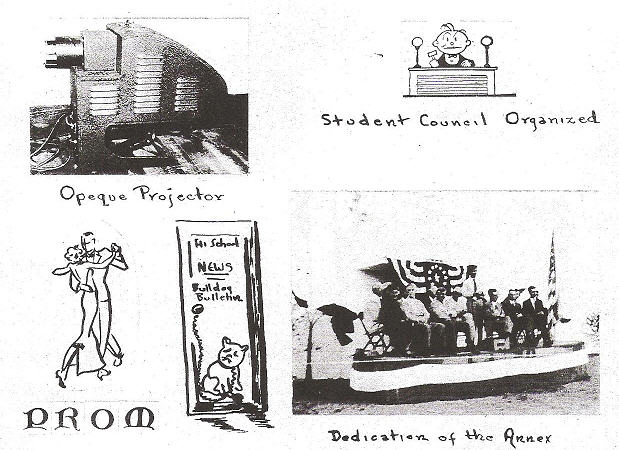 Student Council Organized
Opeque Projector
Hi School
NEWS
Bulldog
Bulletin
PROM
Dedication of the Annex